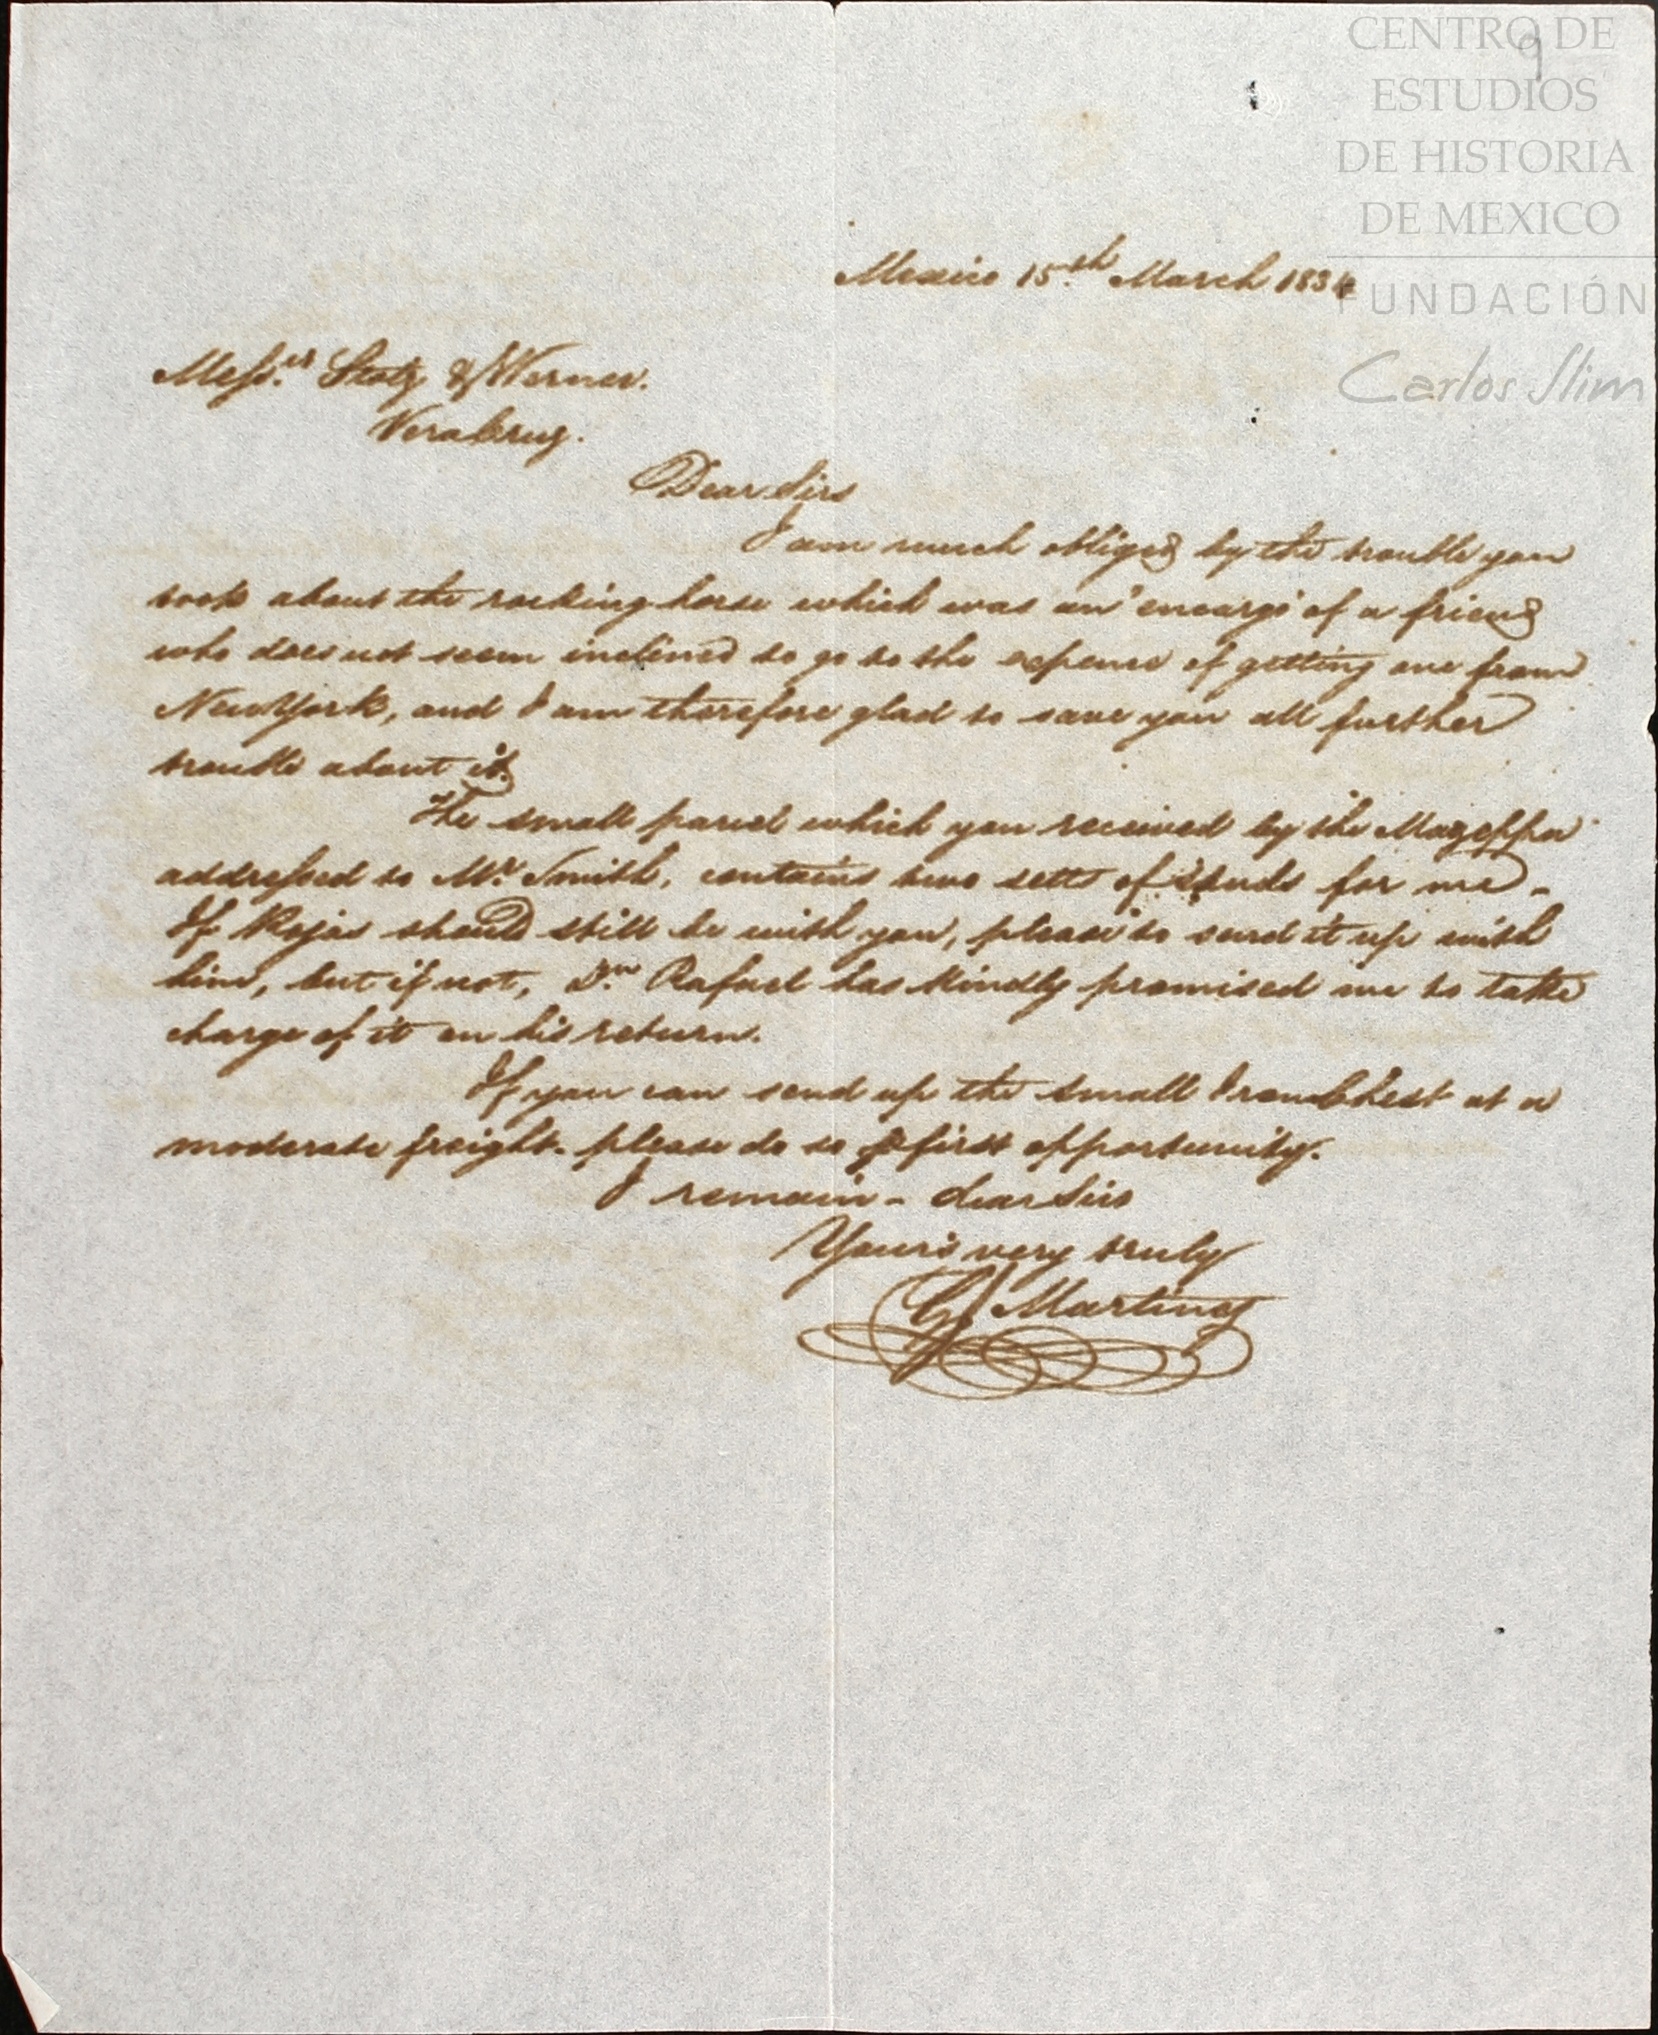 CENTRO DE
ESTUDIOS
DE HISTORIA
DE MEXICO
FUNDACIÓN
Carlos Slim
9
Mexico 15.th March 1834
Mess.rs Stolz & Werner.
Vera Cruz.
Dear Sirs
I am much obliged by the trouble you
took about the rocking horse which was an "encargo" of a friend
who does not seem inclined to go to the expence of getting one from
New York, and I am therefore glad to save you all further
trouble about it.
The small parcel which you received by the Mazeppa
addressed to Mr. Smith, contains two setts of studs for me -
If Rojas should still be with you, please to send it up with
him, but if not, Dn. Rafael has kindly promised me to take
charge of it on his return.
If you can send up the small Iron Chest at a
moderate freight - please do so p first opportunity.
I remain - dear Sirs
Yours very truly
Martinez